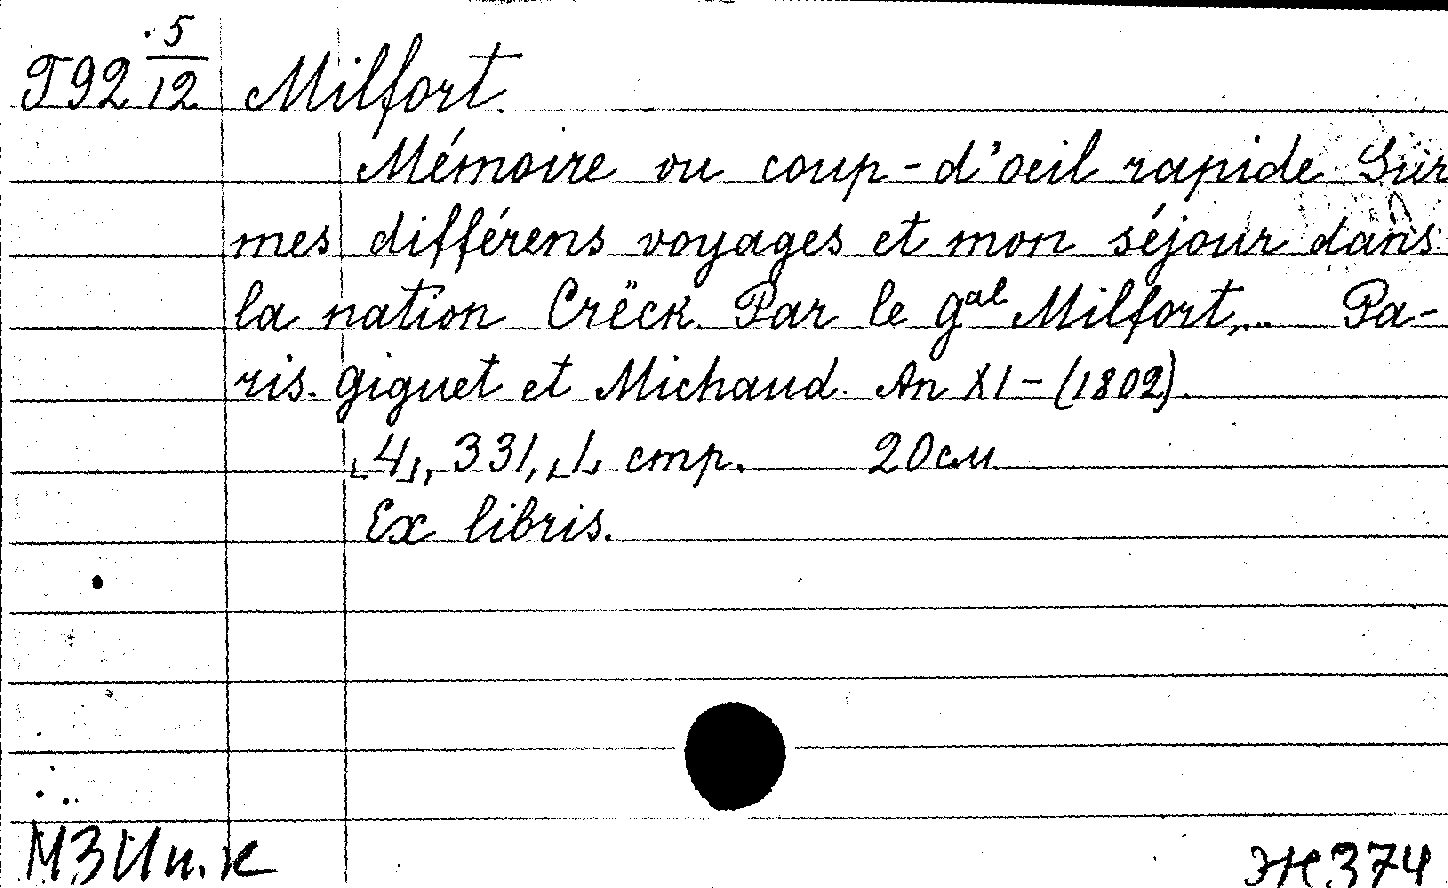 Т92 5/12 Milfort.
Mémoire ou coup-d'oeil rapide Sur
mes différens voyages et mon séjour dans
la nation Crëck. Par le gal Milfort,... Pa-
ris. Giguet et Michaud. An XI - (1802).
[4], 331, [1] стр. 20см
Ex libris.
МЗИн.к Ж.374